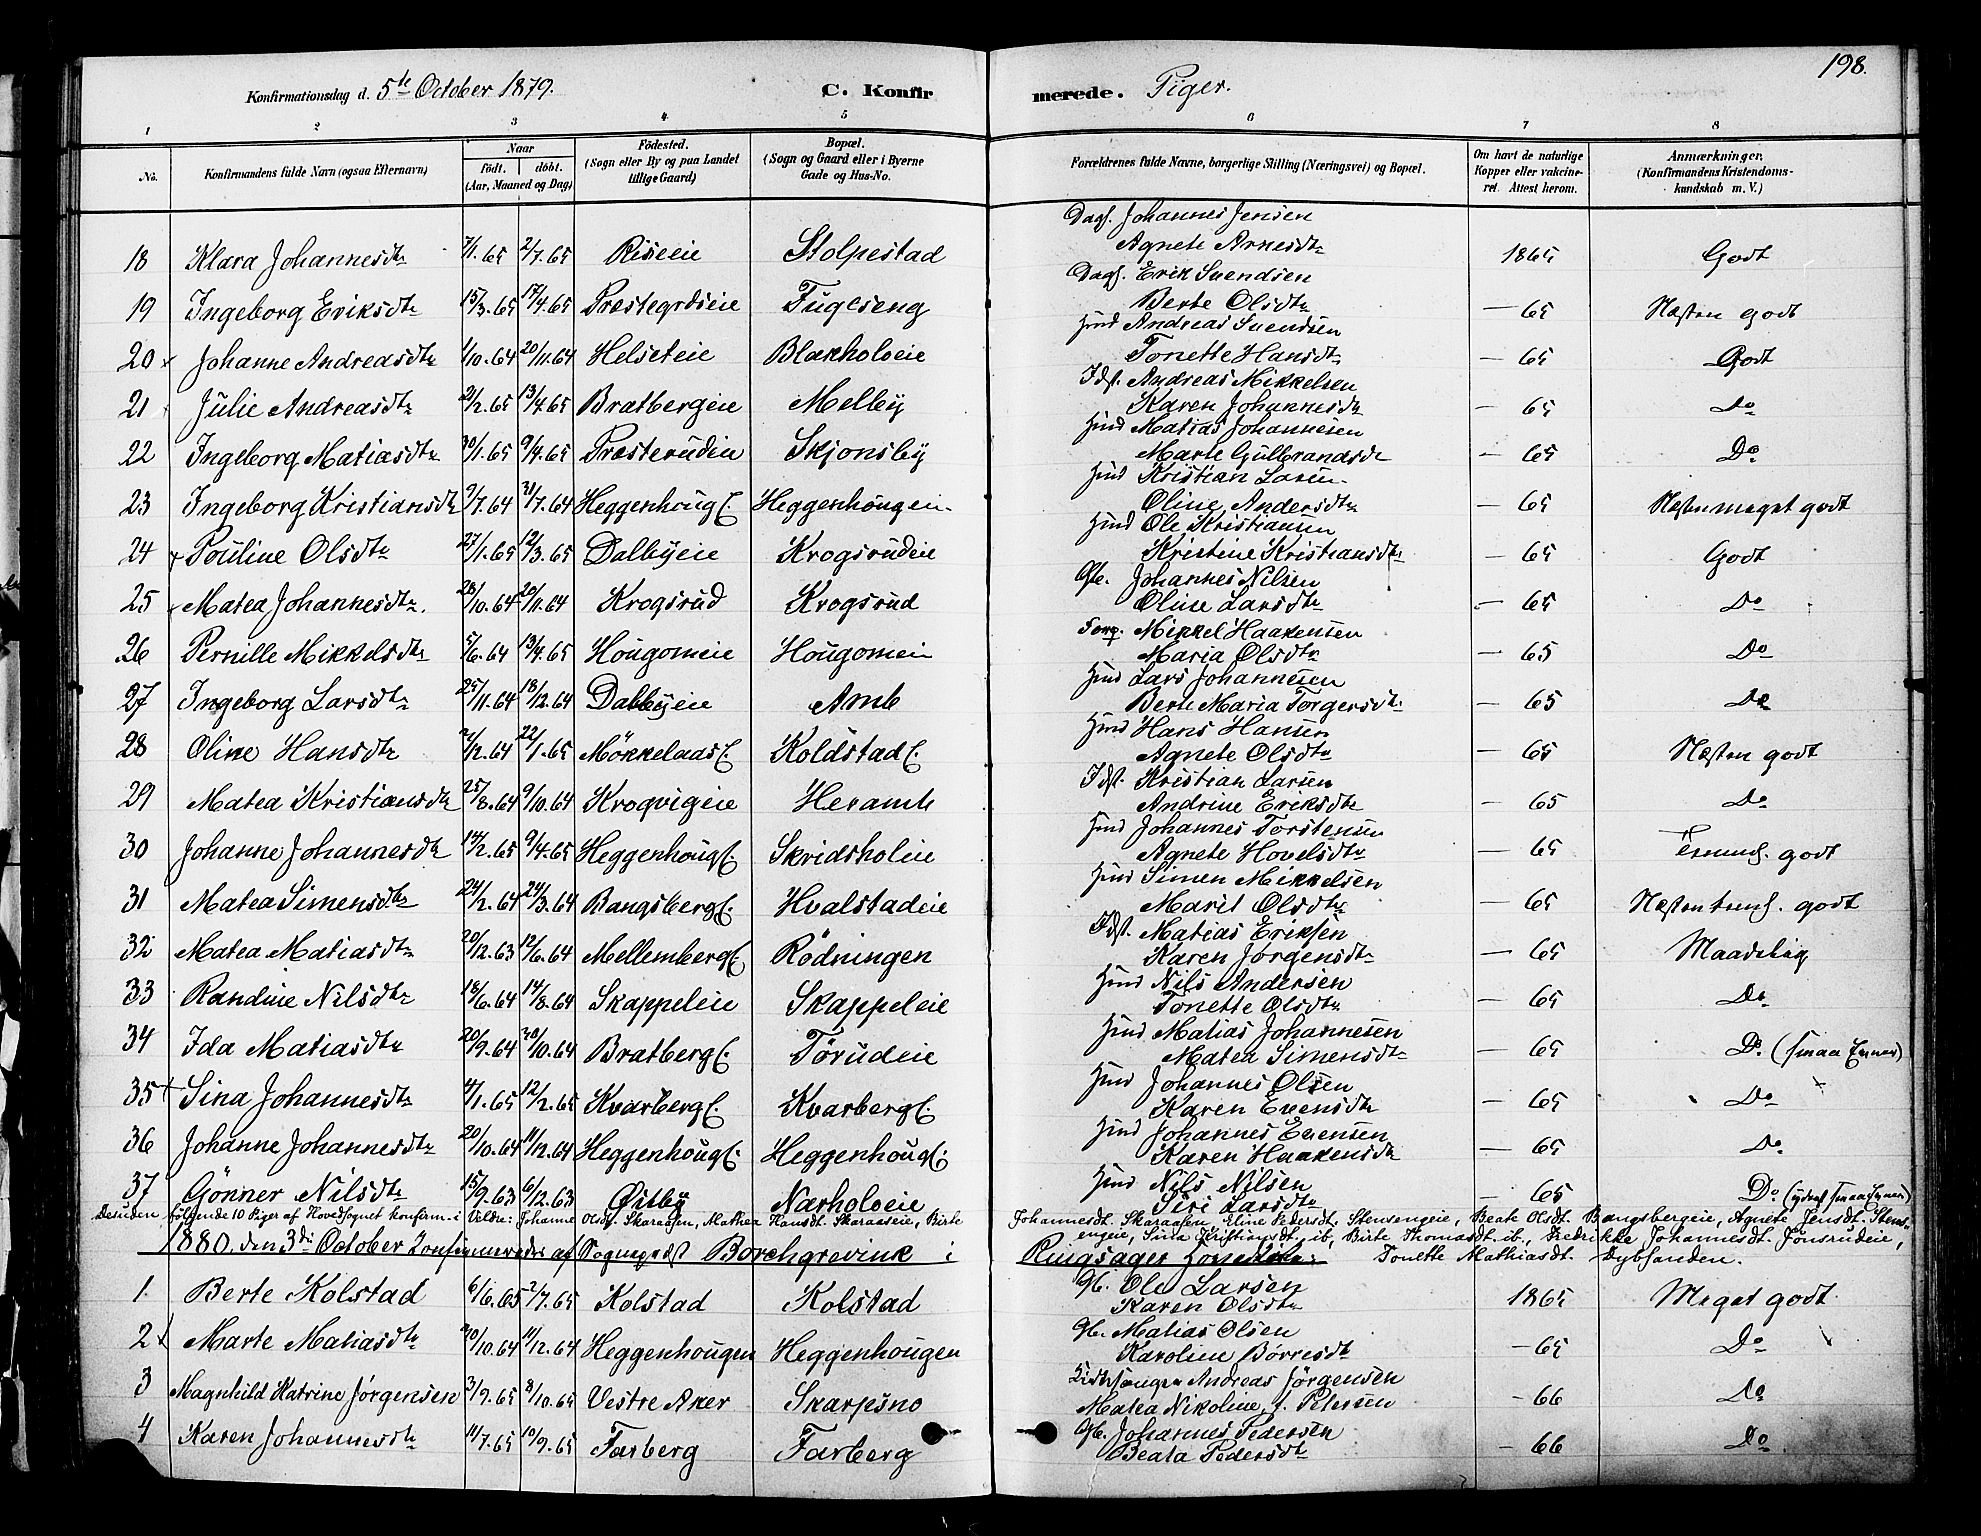 198.
Konfirmationsdag d. 5te October 1879. C. Konfirmerede. Piger.
1 2 3 4 5 6 7 8
No. Konfirmandens fulde Navn (ogsaa Efternavn) Naar født. døbt. (Aar, Maaned og Dag) Fødested. (Sogn eller By og paa Landet tillige Gaard) Bopæl. (Sogn og Gaard eller i Byerne Gade og Hus-No. Forældrenes fulde Navne, borgerlige Stilling (Næringsvei) og Bopæl. Om havt de naturlige Kopper eller vakcineret. Attest herom. Anmærkninger. (Konfirmandens Kristendomskundskab m. V.)
18 Klara Johannesdtr 7/1.65 2/7.65 Riseeie Stolpestad Dagl. Johannes Jensen Agnete Arnesdtr 1865 Godt
19 Ingeborg Eriksdtr 15/3.65 17/4.65 Præstegrdseie Fuglseng Dagl. Erik Svendsen Berte Olsdtr — 65 Næsten godt
20 Johanne Andreasdtr 1/10.64 20/11.64 Helseteie Blakholeie Hmd Andreas Svendsen Tonette Hansdtr — 65 Godt
21 Julie Andreasdtr 21/2.65 13/4.65 Bratbergeie Melby Idst. Andreas Mikkelsen Karen Johannesdtr — 65 Do
22 Ingeborg Matiasdtr 30/1.65 9/4.65 Præsterudeie Skjonsby Hmd Matias Johannesen Marte Gulbrandsdr — 65 Do
23 Ingeborg Kristiansdtr 9/7.64 31/7.64 Heggenhougl. Heggenhougen Hmd Kristian Larsen Oline Andersdtr — 65 Næsten meget godt
24 Pouline Olsdtr 27/1.65 12/3.65 Dalbyeie Krogsrudeie Hmd Ole Kristiansen Kristine Kristiansdtr — 65 Godt
25 Matea Johannesdtr. 28/10.64 20/11.64 Krogsrud Krogsrud Gbr. Johannes Nilsen Oline Larsdtr — 65 Do
26 Pernille Mikkelsdtr 5/6.64 13/4.65 Hougomeie Hougomeie Forp. Mikkel Haakensen Maria Olsdtr — 65 Do
27 Ingeborg Larsdtr 25/11.64 18/12.64 Dalbyeie Amb Hmd Lars Johannesen Berte Maria Torgersdtr — 65 Do
28 Oline Hansdtr 2/12.64 22/1.65 Mökkelaasl. Koldstadl. Hmd Hans Hansen Agnete Olsdtr — 65 Næsten godt
29 Matea Kristiansdtr 25/8.64 9/10.64 Krogvigeie Heramb Idst. Kristian Larsen Andrine Eriksdtr — 65 Do
30 Johanne Johannesdtr 14/2.65 9/4.65 Heggenhougl. Skridsholeie Hmd Johannes Torstensen Agnete Hovelsdtr — 65 Temml. godt
31 Matea Simensdtr 24/2.64 24/3.64 Bangsbergl. Hvalstadeie Hmd Simen Mikkelsen Marit Olsdtr — 65 Næsten teml. godt
32 Matea Matiasdtr 20/12.63 12/6.64 Mellembergl. Rödningen Idst. Matias Eriksen Karen Jørgensdtr — 65 Maadelig
33 Randine Nilsdtr 18/6.64 14/8.64 Skappeleie Skappeleie Hmd Nils Andersen Tonette Olsdtr — 65 Do
34 Ida Matiasdtr 20/9.64 30/10.64 Bratbergl. Torudeie Hmd Matias Johannesen Matea Simensdtr — 65 Do. (smaa Evner)
35 Sina Johannesdtr 4/1.65 12/2.65 Kvarbergl. Kvarbergl. Hmd Johannes Olsen Karen Evensdtr — 65 Do
36 Johanne Johannesdtr 20/10.64 11/12.64 Heggenhougl. Heggenhougl. Hmd Johannes Evensen Karen Haakensdtr — 65 Do
37 Gönner Nilsdtr 15/9.63 6/12.63 Østby Nærholoeie Hmd Nils Nilsen Siri Larsdtr — 65 Do (yderst smaa Evner)
Desuden følgende 10 Piger af Hovedsognet konfirm. i Veldre: Johanne Olsdt. Skaraasen, Mathea Hansdt. Skaraaseie, Birte Johannesdt. Skaraasen, Eline Pedersdt. Stensengeie, Beate Olsdt. Bangsbergeie, Agnete Jensdt. Stensengeie, Sina Kristiansdt. ib., Birte Thomasdt. ib., Fredrikke Johannesdt. Jönsrudeie, Tonette Mathiasdt. Dybsanden.
1880. den 3die October Konfirmerede af Sogneprest Borchgrevink i Ringsager Hovedkirke:
1. Berte Kolstad 6/6.65 2/7.65 Kolstad Kolstad Gbr. Ole Larsen Karen Olsdtr 1865 Meget godt.
2 Marte Matiasdtr 20/10.64 11/12.64 Heggenhougen Heggenhougen Gbr. Matias Olsen Karoline Børresdtr — 65 Do
3 Magnhild Katrine Jørgensen 3/9.65 8/10.65 Vestre Aker Skarpsno Kirksanger Andreas Jörgensen Matea Nikoline f. Petersen — 66 Do
4 Karen Johannesdtr 11/7.65 10/9.65 Farberg Farberg Gbr. Johannes Pedersen Beata Pedersdtr — 66 Do